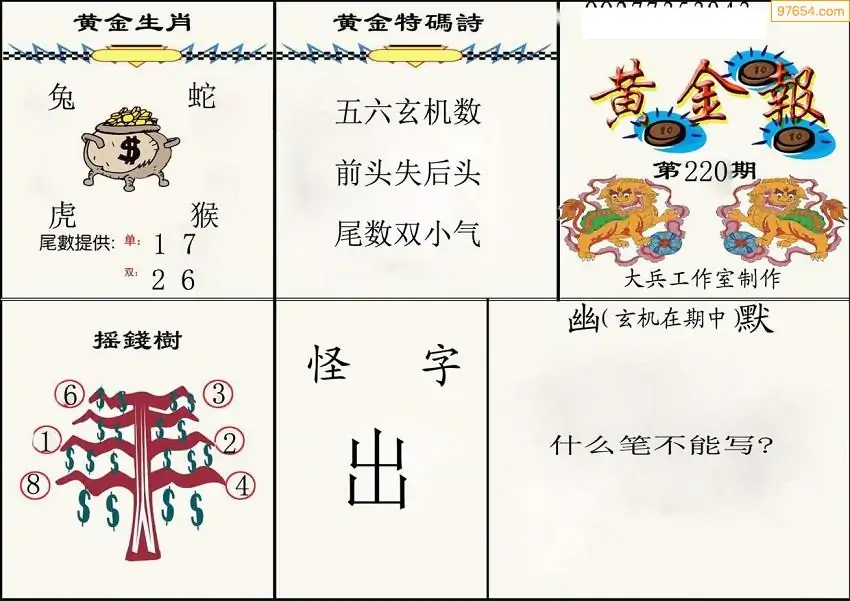 黄金生肖
兔 蛇
$
虎 猴
尾數提供: 单: 1 7
双: 2 6
黄金特碼詩
五六玄机数
前头失后头
尾数双小气
97654.com
黄金報
10
10
10
第220期
大兵工作室制作
摇錢樹
6 3
1 2
8 4
$ $ $ $
$ $ $ $
$ $ $ $
$ $ $ $
怪 字
出
幽(玄机在期中)默
什么笔不能写?